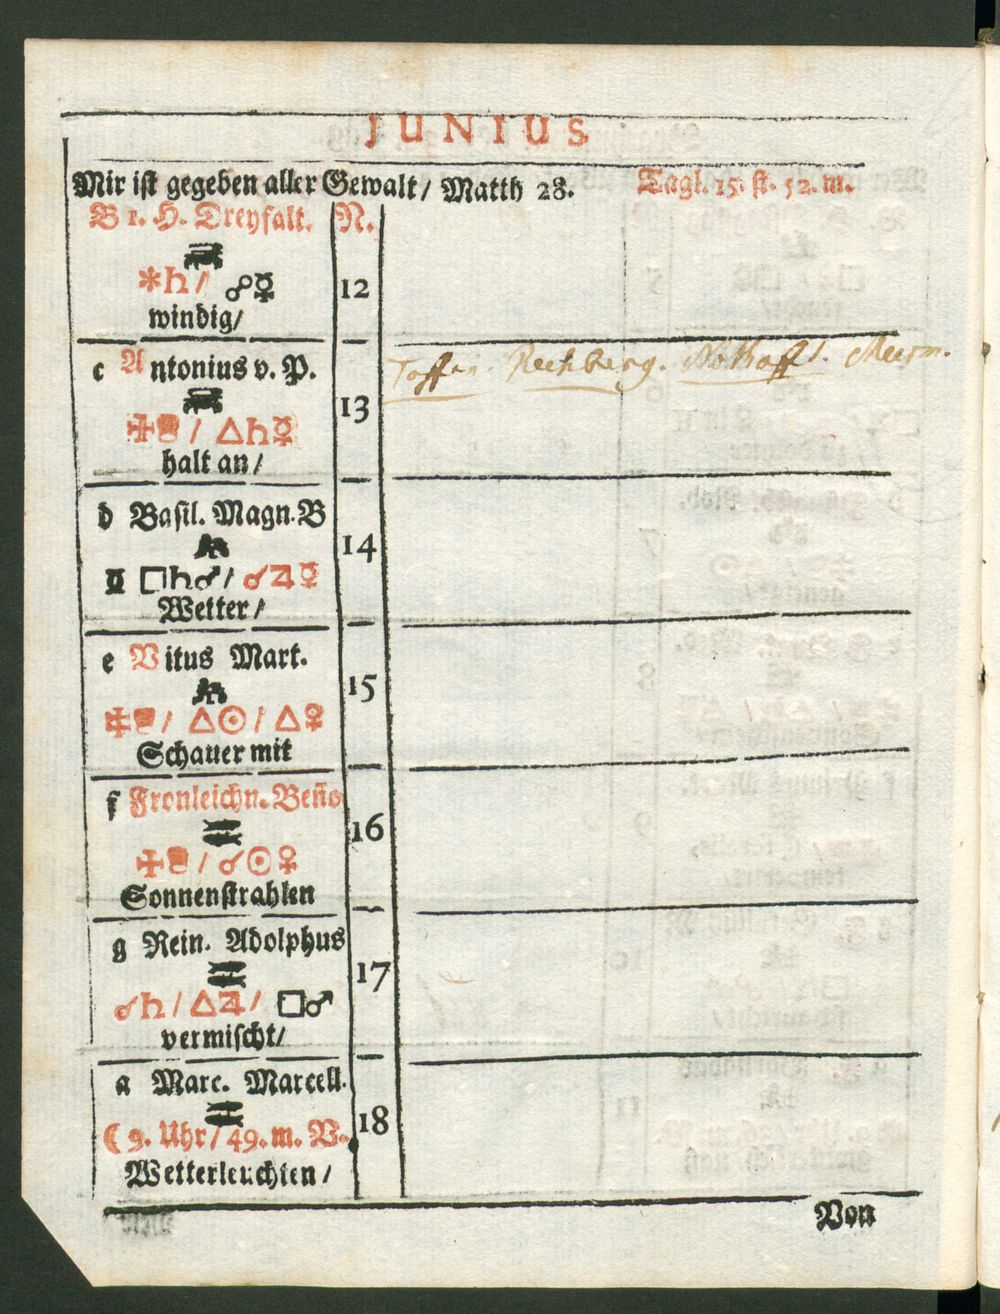 JUNIUS
Mir ist gegeben aller Gewalt / Matth 28. Tagl. 15. st. 52. m.
B 1. H. Dreyfalt. N.
✱♄ / ☍☿ 12
windig /
c Antonius v. P.
Rechberg. Nothafft.
13
✠ / △♄☿
halt an /
d Basil. Magn. B
14
♊ □♄♂ / ☌♃☿
Wetter /
e Vitus Mart.
15
✠ / △☉ / △♀
Schauer mit
f Fronleichn. Beño
16
✠ / ☌☉♀
Sonnenstrahlen
g Rein. Adolphus
17
☌♄ / △♃ / □♂
vermischt /
a Marc. Marcell.
18
☾ 9. Uhr / 49. m. V.
Wetterleuchten /
Von